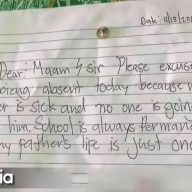 Date: 11/18/20
Dear: Maam/sir Please excuse
being absent today because m
er is sick and no one is going
him, School is always Permane
my father's life is just one
ia